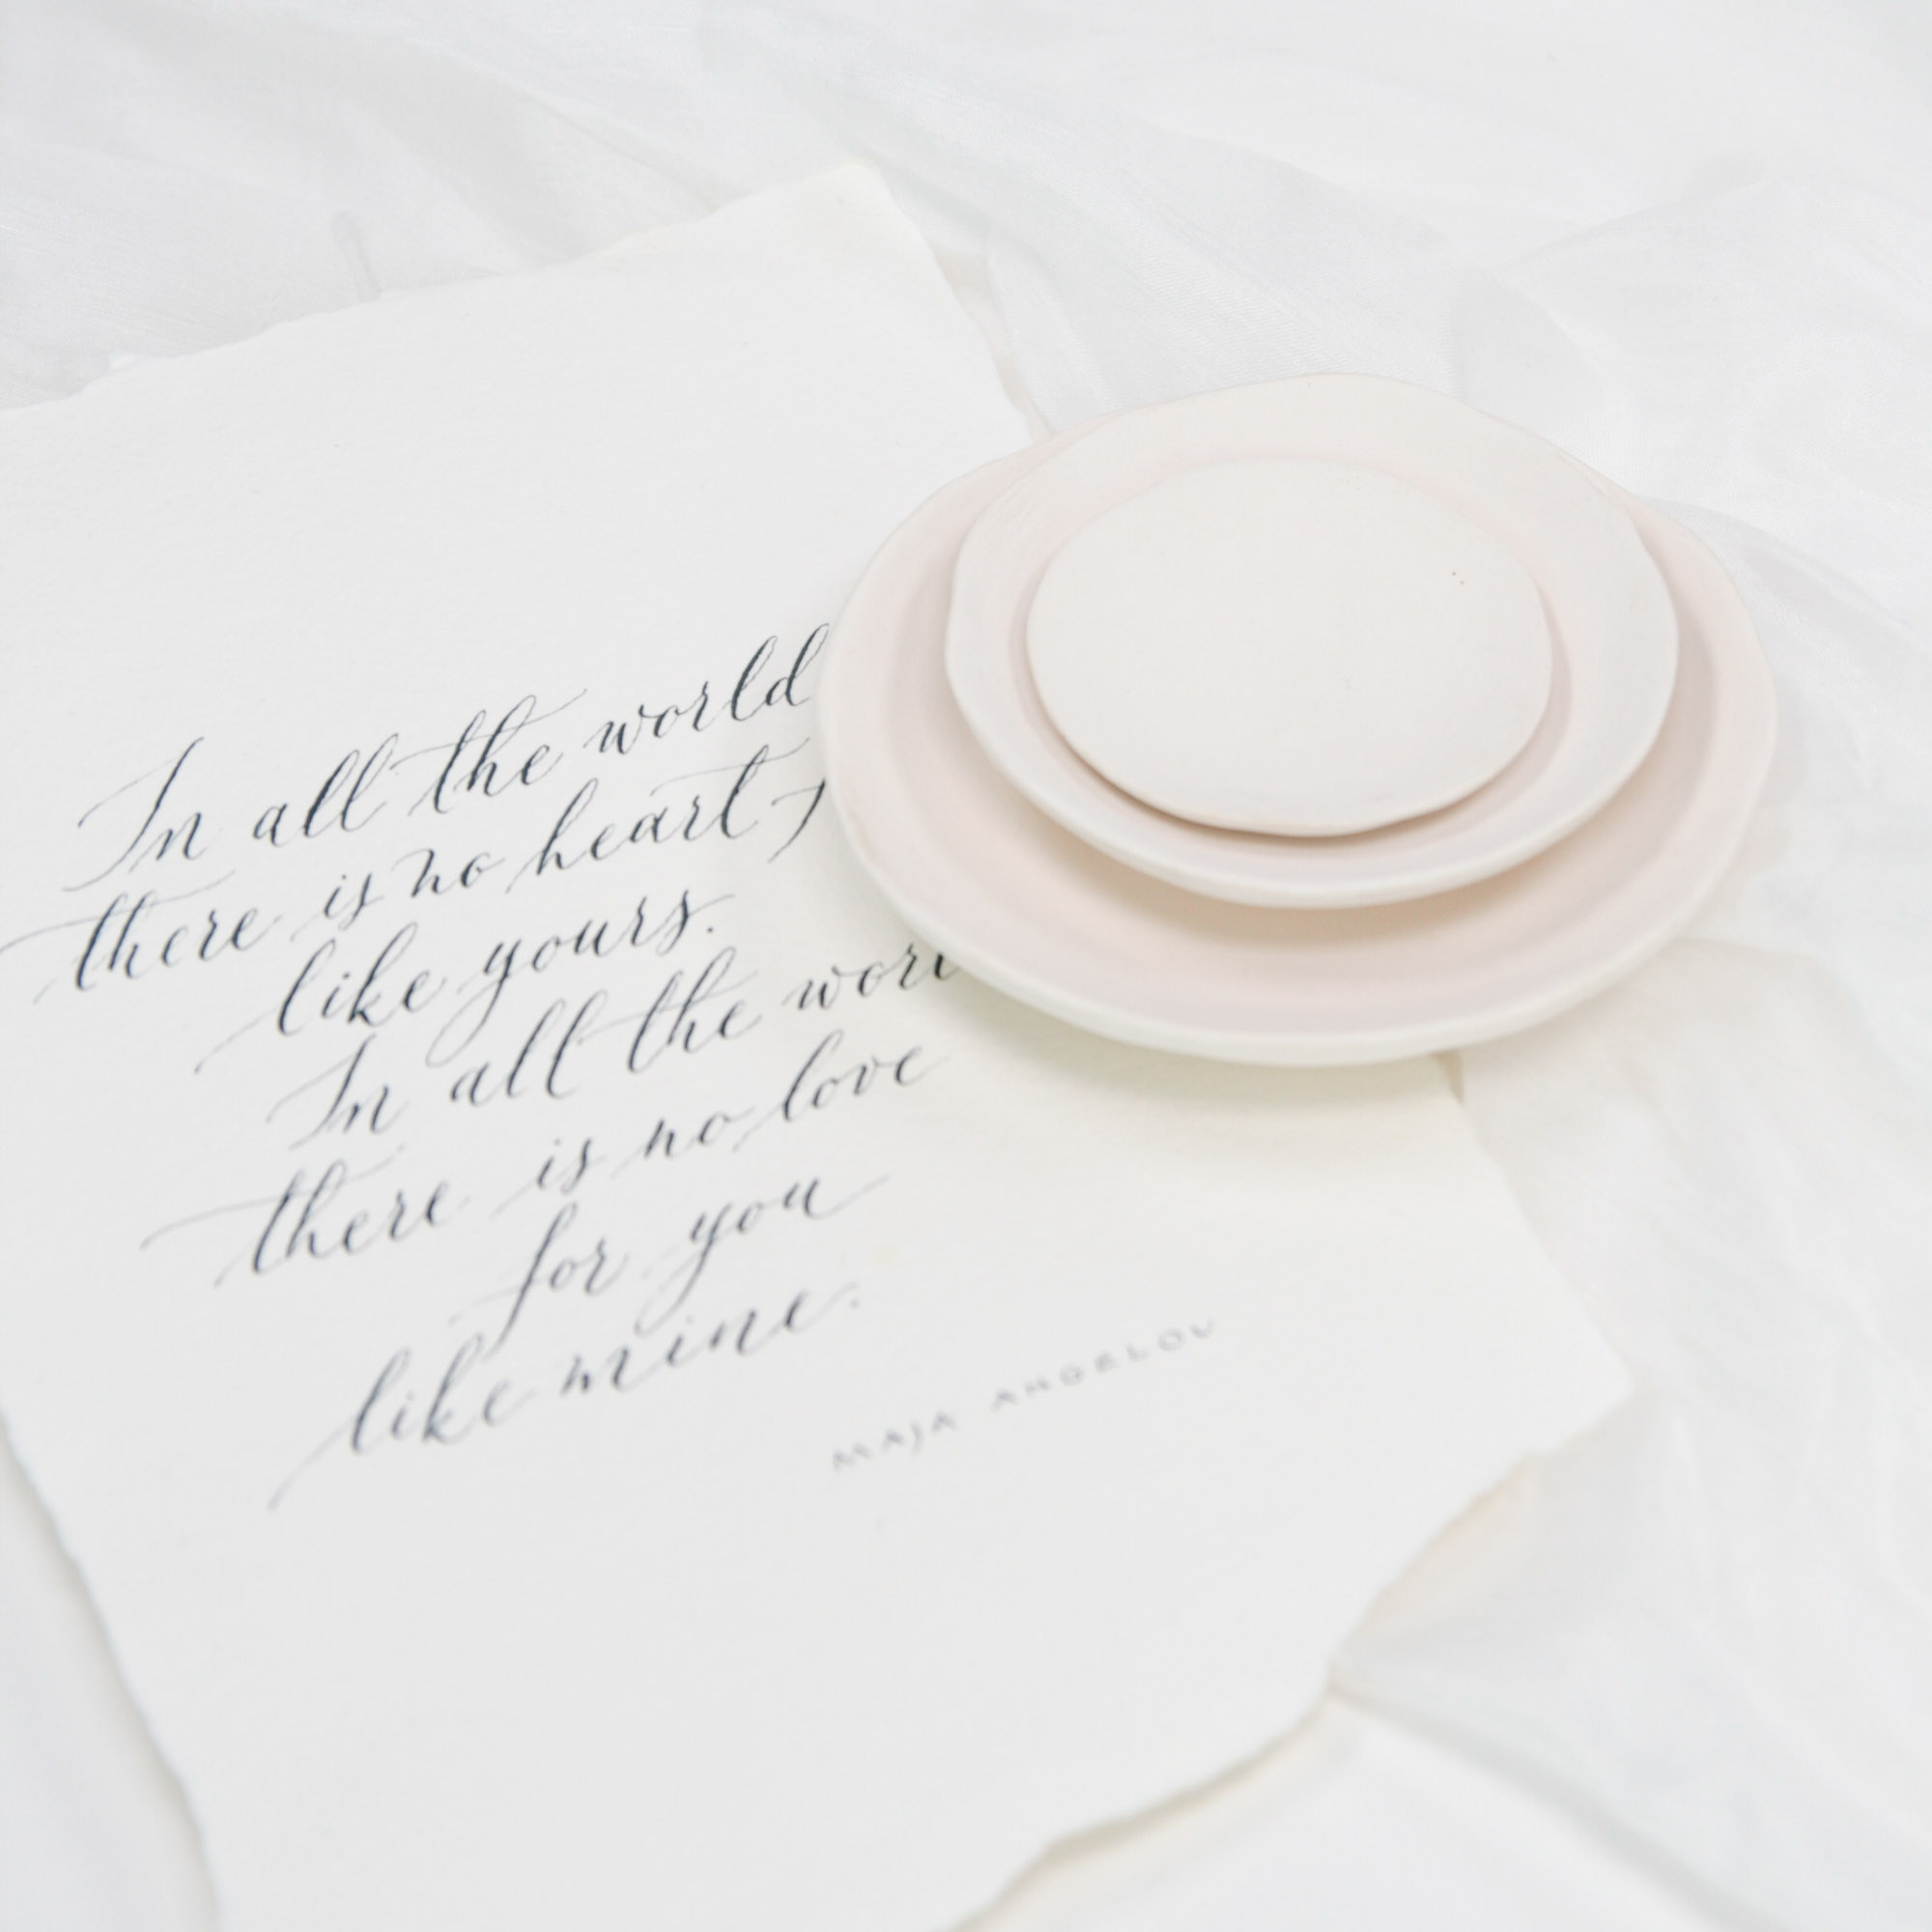 In all the world
there is no heart f
like yours.
In all the worl
there is no love
for you
like mine.
MAJA ANGELOV